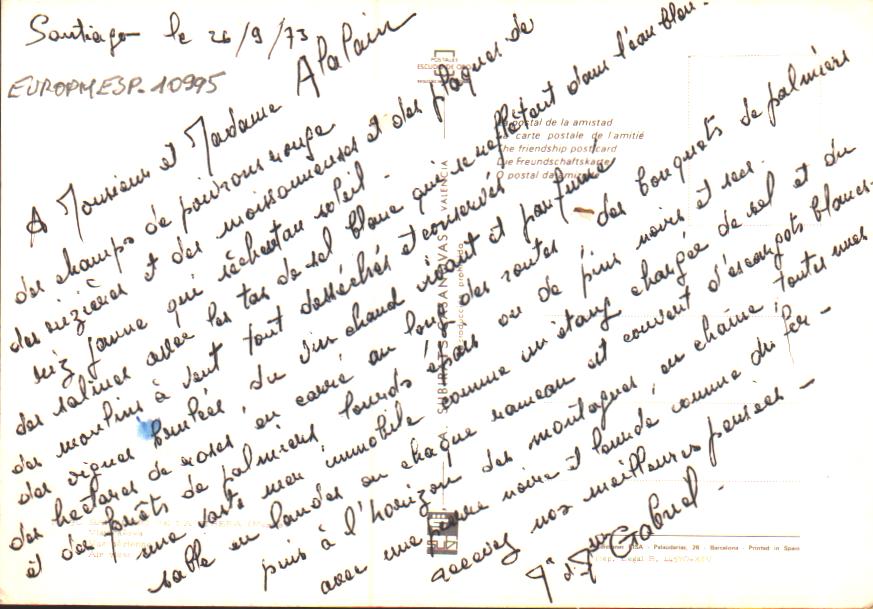 Santiago le 26/9/73
EUROPMESP-10995
A Monsieur et Madame Alalain
des champs de poivrons rouge
des rizières et des moissonneuses et des plaques de
riz jaune qui sèchent au soleil -
des salines avec les tas de sel blanc qui se reflètent dans l'eau blan-
des moulins à vent tout desséchés et conservés
des vignes brulées, du vin chaud vivant et parfumé
des hectares de roses, en carré au long des routes, des bouquets de palmiers
et des forêts de palmiers lourds épars ou de pins noirs et secs.
une sorte mer immobile comme un étang chargée de sel et du
sable en landes où chaque rameau est couvert d'escargots blancs-
puis à l'horizon des montagnes, en chaîne toutes nues
avec une terre noire et lourde comme du fer -
recevez nos meilleures pensées -
Gabriel -
POSTALES
ESCUDO DE ORO
La postal de la amistad
La carte postale de l'amitié
The friendship postcard
Die Freundschaftskarte
O postal da amizade
A. SUBIRATS CASANOVAS - VALENCIA
reproducción prohibida
FISA - Palaudarias, 26 - Barcelona - Printed in Spain